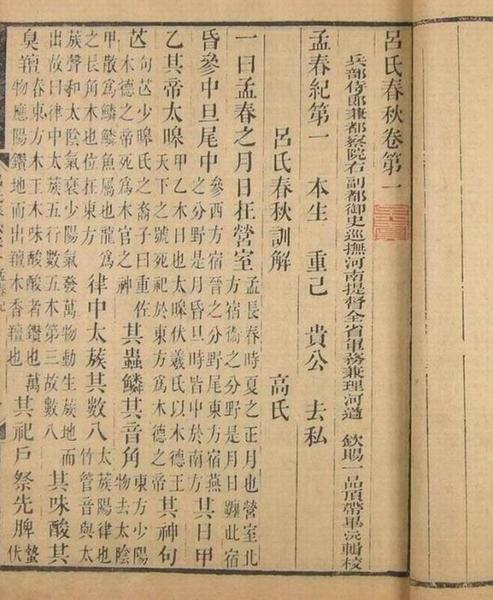 呂氏春秋卷第一
兵部侍郎兼都察院右副都御史巡撫河南提督全省軍務兼理河道 欽賜一品頂帶畢沅輯校
孟春紀第一 本生 重己 貴公 去私
呂氏春秋訓解 高氏
一曰孟春之月日在營室孟長春時夏之正月也營室北方宿衞之分野是月日躔此宿
昏參中旦尾中參西方宿晉之分野尾東方宿燕之分野是月昏旦時皆中於南方其日甲
乙其帝太皞甲乙木日也太皞伏羲氏以木德王天下之號死祀於東方爲木德之帝其神句
芒句芒少皞氏之裔子曰重佐木德之帝死爲木官之神其蟲鱗其音角東方少陽物去太陰
甲散爲鱗鱗魚屬也龍爲之長角木也位在東方律中太蔟其數八太蔟陽律也竹管音與太
蔟聲和太陰氣衰少陽氣發萬物動生蔟地而出故曰律中太蔟五行數五木第三故數八其味酸其
臭羶春東方木王木味酸酸者鑽也萬物應陽鑽地而出羶木香羶也其祀戶祭先脾蟄伏